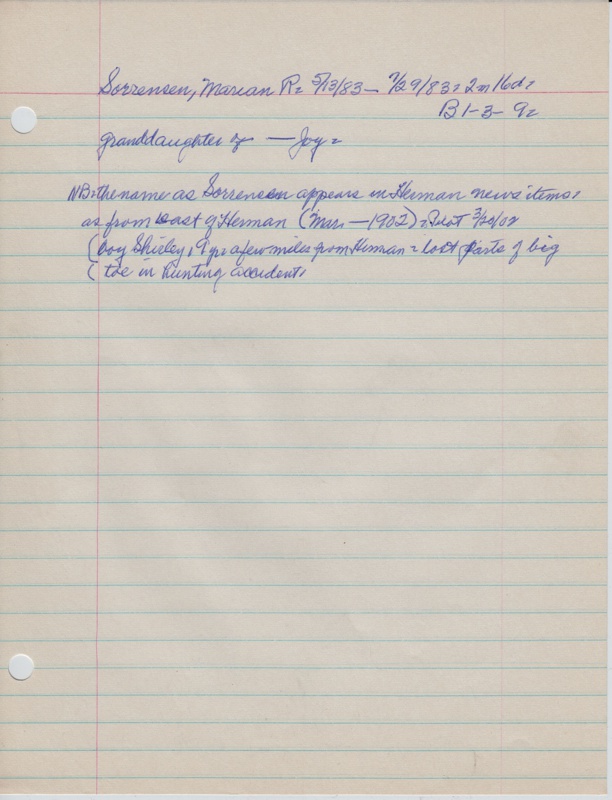 Sorrensen, Marian R= 5/13/83 — 7/29/83 = 2m 16d=
B 1-3-9=
granddaughter of — Joy =
NB: the name as Sorrensen appears in Herman news items =
as from east of Herman (Mar. — 1902) = 3/20/02
(boy Shirley, 9 yrs a few miles from Herman = lost parts of big
( toe in hunting accident,